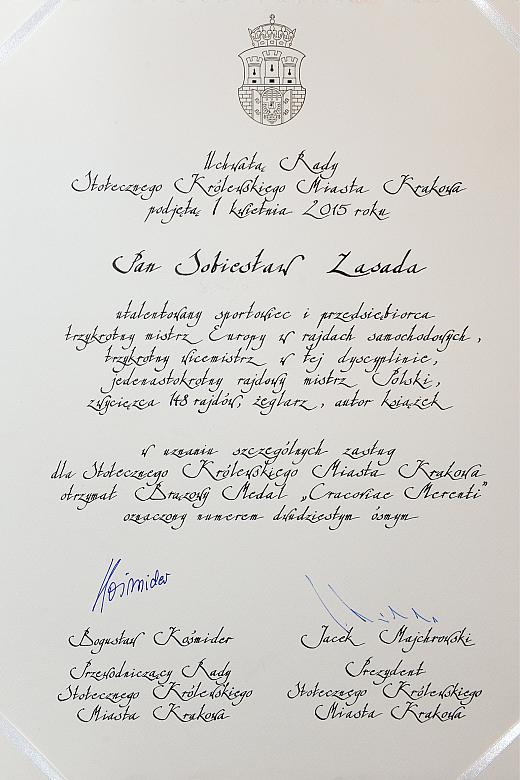 Uchwałą Rady
Stołecznego Królewskiego Miasta Krakowa
podjętą 1 kwietnia 2015 roku
Pan Sobiesław Zasada
utalentowany sportowiec i przedsiębiorca
trzykrotny mistrz Europy w rajdach samochodowych,
trzykrotny wicemistrz w tej dyscyplinie,
jedenastokrotny rajdowy mistrz Polski,
zwycięzca 148 rajdów, żeglarz, autor książek
w uznaniu szczególnych zasług
dla Stołecznego Królewskiego Miasta Krakowa
otrzymał Brązowy Medal „Cracoviae Merenti”
oznaczony numerem dwudziestym ósmym
Kośmider
Bogusław Kośmider
Przewodniczący Rady
Stołecznego Królewskiego
Miasta Krakowa
Jacek Majchrowski
Prezydent
Stołecznego Królewskiego
Miasta Krakowa